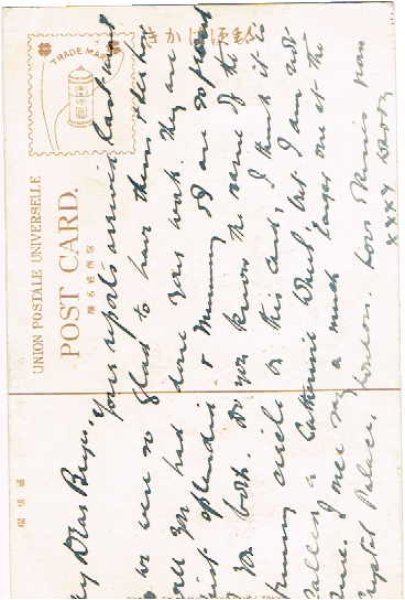 TRADE MARK
きかは便郵
UNION POSTALE UNIVERSELLE
POST CARD.
My Dear Boys,
Your reports arrived last
we were so glad to have them
all you had done very They are
just splendid & Mummy & I are so proud
of you both. Do you know the name of the
funny circle on this card, I think it is
called a Catherine Wheel, but I am not
sure. I once saw a much larger one at the
Crystal Palace, London. Love & kisses from
xxxx Daddy